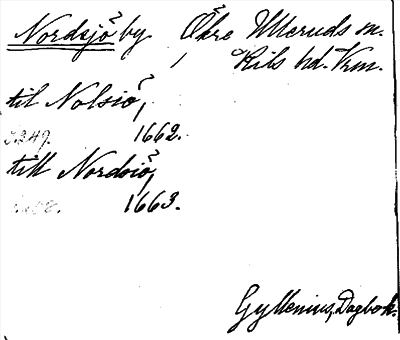 Nordsjö by Öfre Ulleruds sn.
Kils hd. Vrm.
til Nolsiö,
s. 249. 1662.
till Nordsiö,
1663.
Gyllenius, Dagbok.